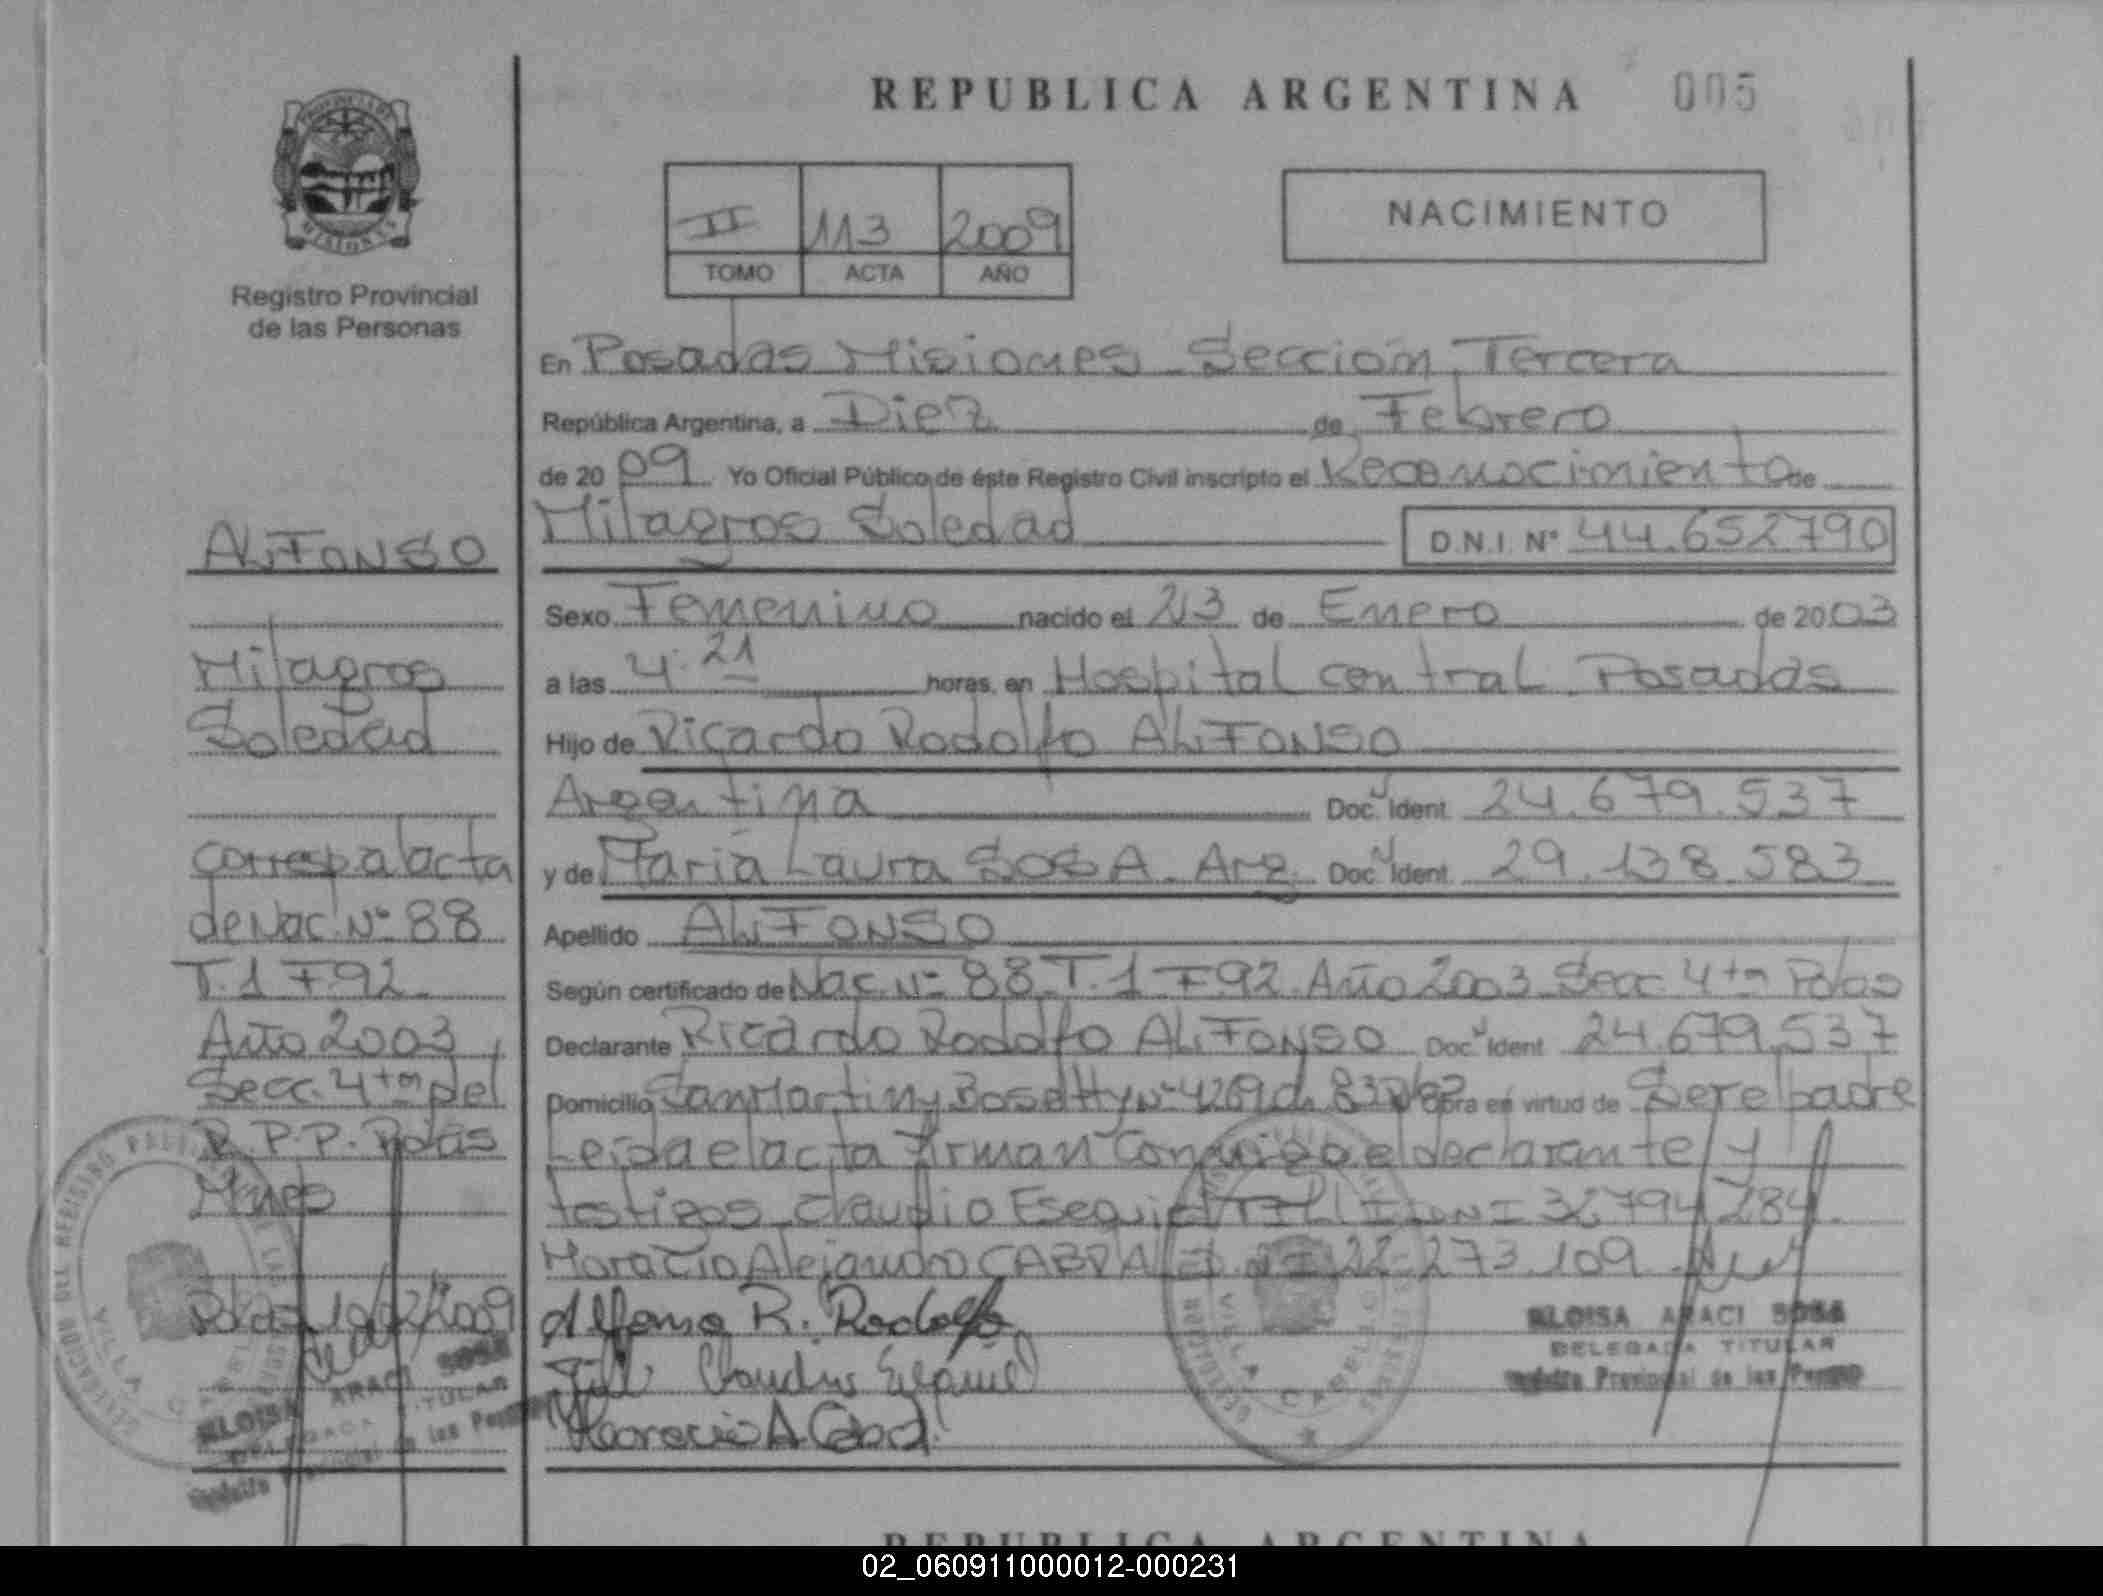 REPUBLICA ARGENTINA 005
PROVINCIA DE
MISIONES
Registro Provincial
de las Personas
II 113 2009
TOMO ACTA AÑO
NACIMIENTO
En Posadas Misiones Sección Tercera
República Argentina, a Diez de Febrero
de 2009 Yo Oficial Público de éste Registro Civil inscripto el Reconocimiento de
Milagros Soledad D.N.I. N° 44.652790
Sexo Femenino nacido el 23 de Enero de 2003
a las 4:21 horas, en Hospital central Posadas
Hijo de Ricardo Rodolfo ALFONSO
Argentina Doc. Ident. 24.679.537
y de María Laura SOSA. Arg. Doc. Ident. 29.138.583
Apellido ALFONSO
Según certificado de Nac. N° 88 T.1 F92 Año 2003 Secc 4ta Pdas
Declarante Ricardo Rodolfo ALFONSO Doc. Ident. 24.679.537
Domicilio San Martin y N° 4269 obra en virtud de Ser el padre
Leída el acta firman Conmigo el declarante y
testigos Claudio Esequiel DNI 32794284
Horacio Alejandro CABRAL 22.273.109
Alfonso R. Rodolfo
Claudio
Horacio A Cabral
ELOISA ARACI SOSA
DELEGADA TITULAR
Registro Provincial de las Personas
ALFONSO
Milagros
Soledad
corresp a l acta
de Nac. N° 88
T.1 F92
Año 2003
Secc. 4ta del
R.P.P. Pdas
Mnes
Pdas 10/02/2009
ELOISA ARACI SOSA
DELEGADA TITULAR
Registro Provincial de las Personas
DELEGACION DEL REGISTRO PROVINCIAL DE LAS PERSONAS
VILLA CABELLO
REPUBLICA ARGENTINA
02_060911000012-000231